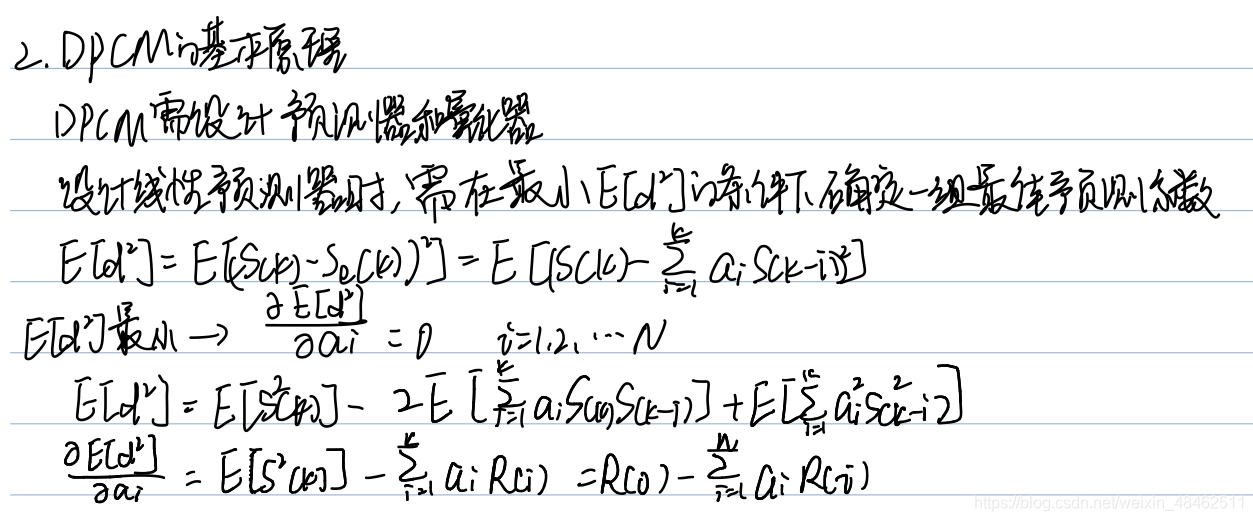 2. DPCM的基本原理
DPCM需设计预测器和量化器
设计线性预测器时,需在最小E[d²]的条件下确定一组最佳预测系数
E[d²] = E[(S(k)-Sₑ(k))²] = E[(S(k)-∑_{i=1}^{k} aᵢS(k-i))²]
E[d²]最小 → ∂E[d²]/∂aᵢ = 0 i=1,2,…N
E[d²] = E[S²(k)] - 2E[∑_{i=1}^{k} aᵢS(k)S(k-i)] + E[∑_{i=1}^{k} aᵢ²S²(k-i)]
∂E[d²]/∂aᵢ = E[S²(k)] - ∑_{i=1}^{k} aᵢR(i) = R(0) - ∑_{i=1}^{N} aᵢR(i)
https://blog.csdn.net/weixin_48462511